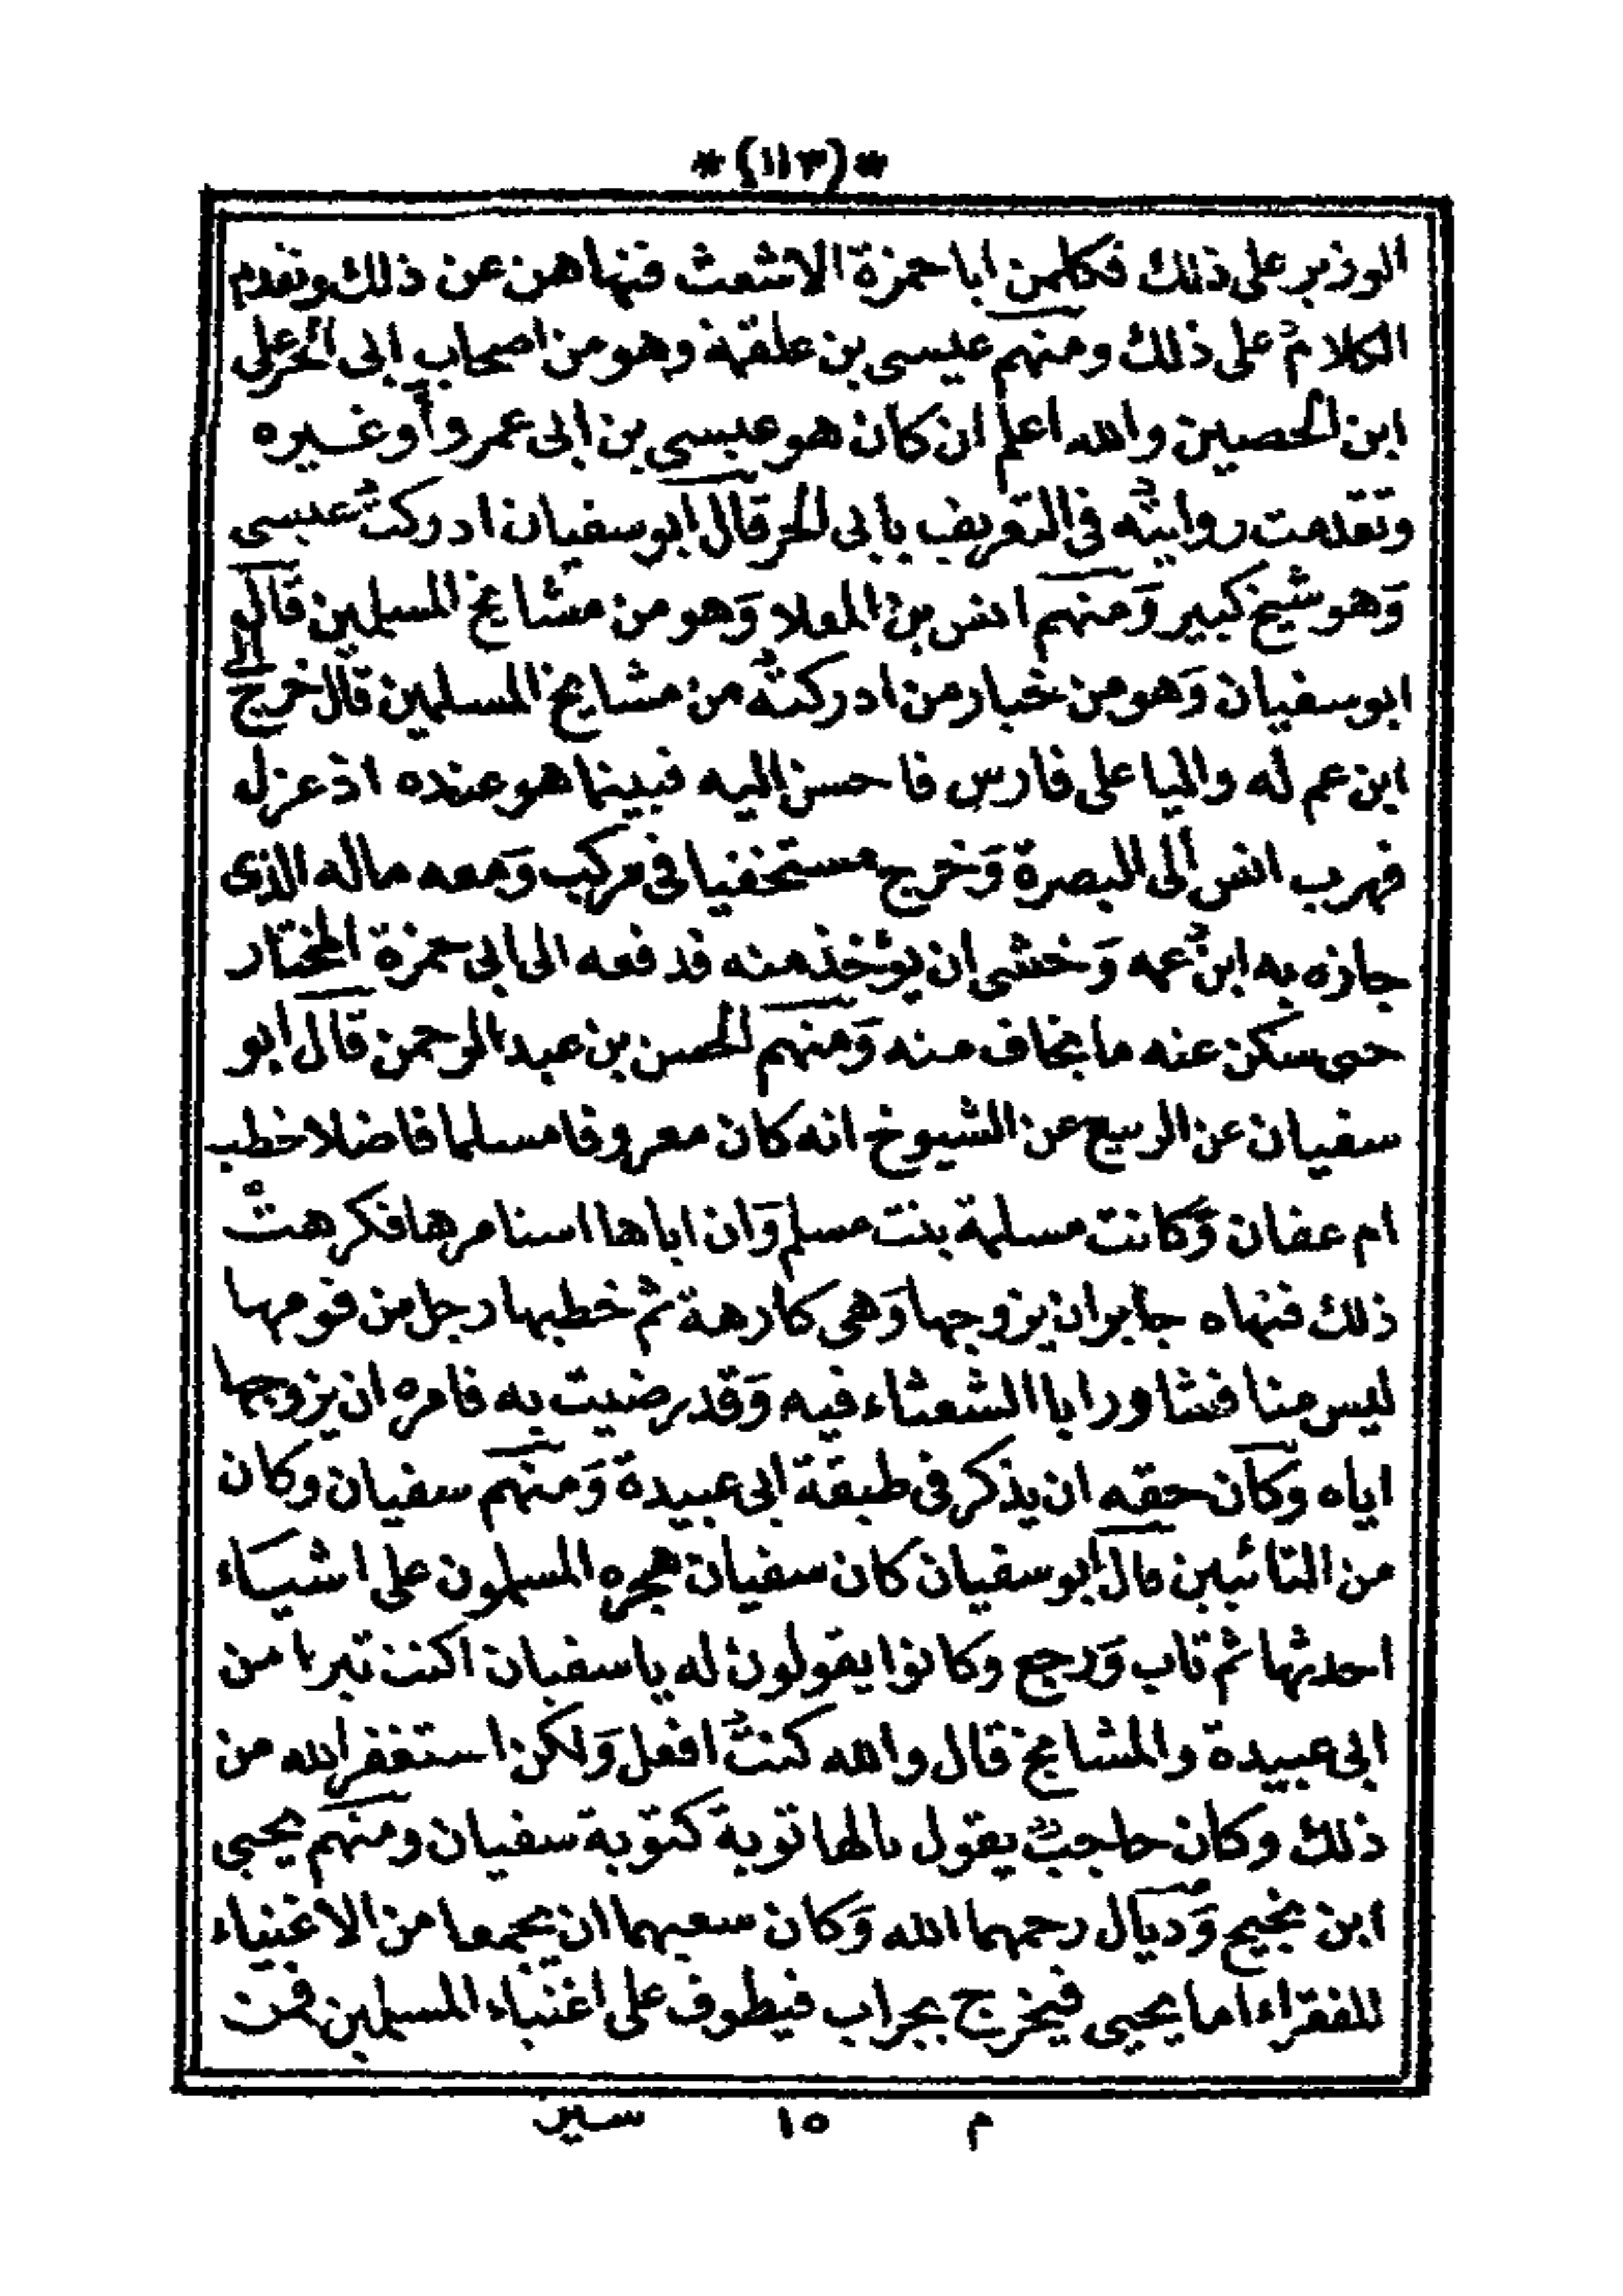 *(١١٣)*
الوزير على ذلك فكلمن ابا حمزة الاشعث فنهاهن عن ذلك وتقدم
الكلام على ذلك ومنهم عيسى بن علقمة وهو من اصحاب ابى الحر على
ابن الحصين والله اعلم ان كان هو عيسى بن ابى عمرو أو غيره
وتقدمت روايته فى التعريف بابى الحر قال ابو سفيان ادركت عيسى
وَهو شيخ كبير وَمنهم انس بن المعلا وَهو من مشايخ المسلمين قال
ابو سفيان وَهو من خيار من ادركته من مشايخ المسلمين قال خرج الى
ابن عم له واليا على فارس فاحسن اليه فبينما هو عنده اذ عزل
فهرب انس الى البصرة وَخرج مستخفيا فى مركب وَمعه ماله الذى
جازه به ابن عمه وَخشى ان يؤخذ منه فدفعه الى ابى حمزة المختار
حى سكن عنه ما يخاف منه وَمنهم الحسن بن عبد الرحمن قال ابو
سفيان عن الربيع عن الشيوخ انه كان معروفا مسلما فاضلا خطب
ام عفان وَكانت مسلمة بنت مسلم وَان اباها استامرها فكرهت
ذلك فنهاه جابر ان يزوجها وَهى كارهة ثم خطبها رجل من قومها
ليس منا فشاور ابا الشعثاء فيه وَقد رضيت به فامره ان يزوجها
اياه وَكان حقه ان يذكر فى طبقة ابى عبيدة وَمنهم سفيان وكان
من التائبين قال ابو سفيان كان سفيان هجره المسلمون على اشياء
احدثها ثم تاب وَرجع وكانوا يقولون له يا سفيان اكنت تبرا من
ابى عبيدة والمشايخ قال والله كنت افعل وَلكن استغفر الله من
ذلك وكان حاجب يقول يالها توبة كتوبة سفيان ومنهم يحيى
ابن نجيح وَديال رحمهما الله وَكان سعيهما ان يجمعا من الاغنياء
للفقراء اما يحيى فيخرج بجراب فيطوف على اغنياء المسلمين فمن
م ١٥ سير